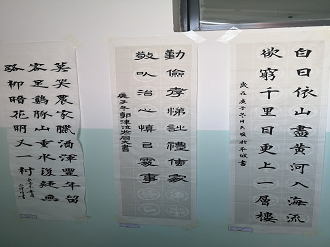 白日依山盡黃河入海流
欲窮千里目更上一層樓
勤儉孝悌詩禮傳家
敬以治心慎己處事
庚子年
莫笑農家臘酒渾豐年留
客足雞豚山重水複疑無
路柳暗花明又一村